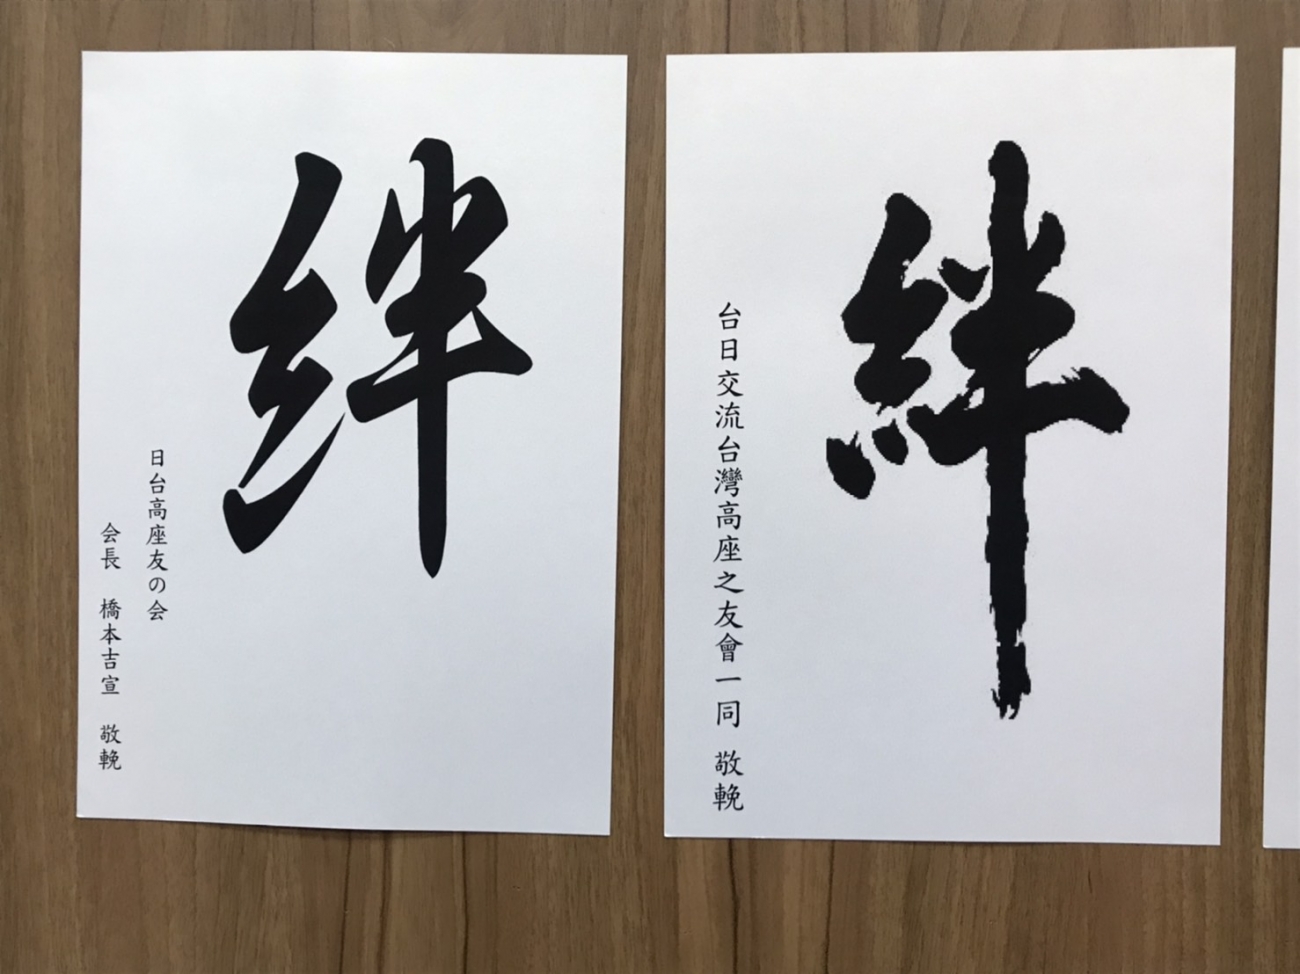 絆
日台高座友の会
会長 橋本吉宣 敬輓
絆
台日交流台灣高座之友會一同 敬輓